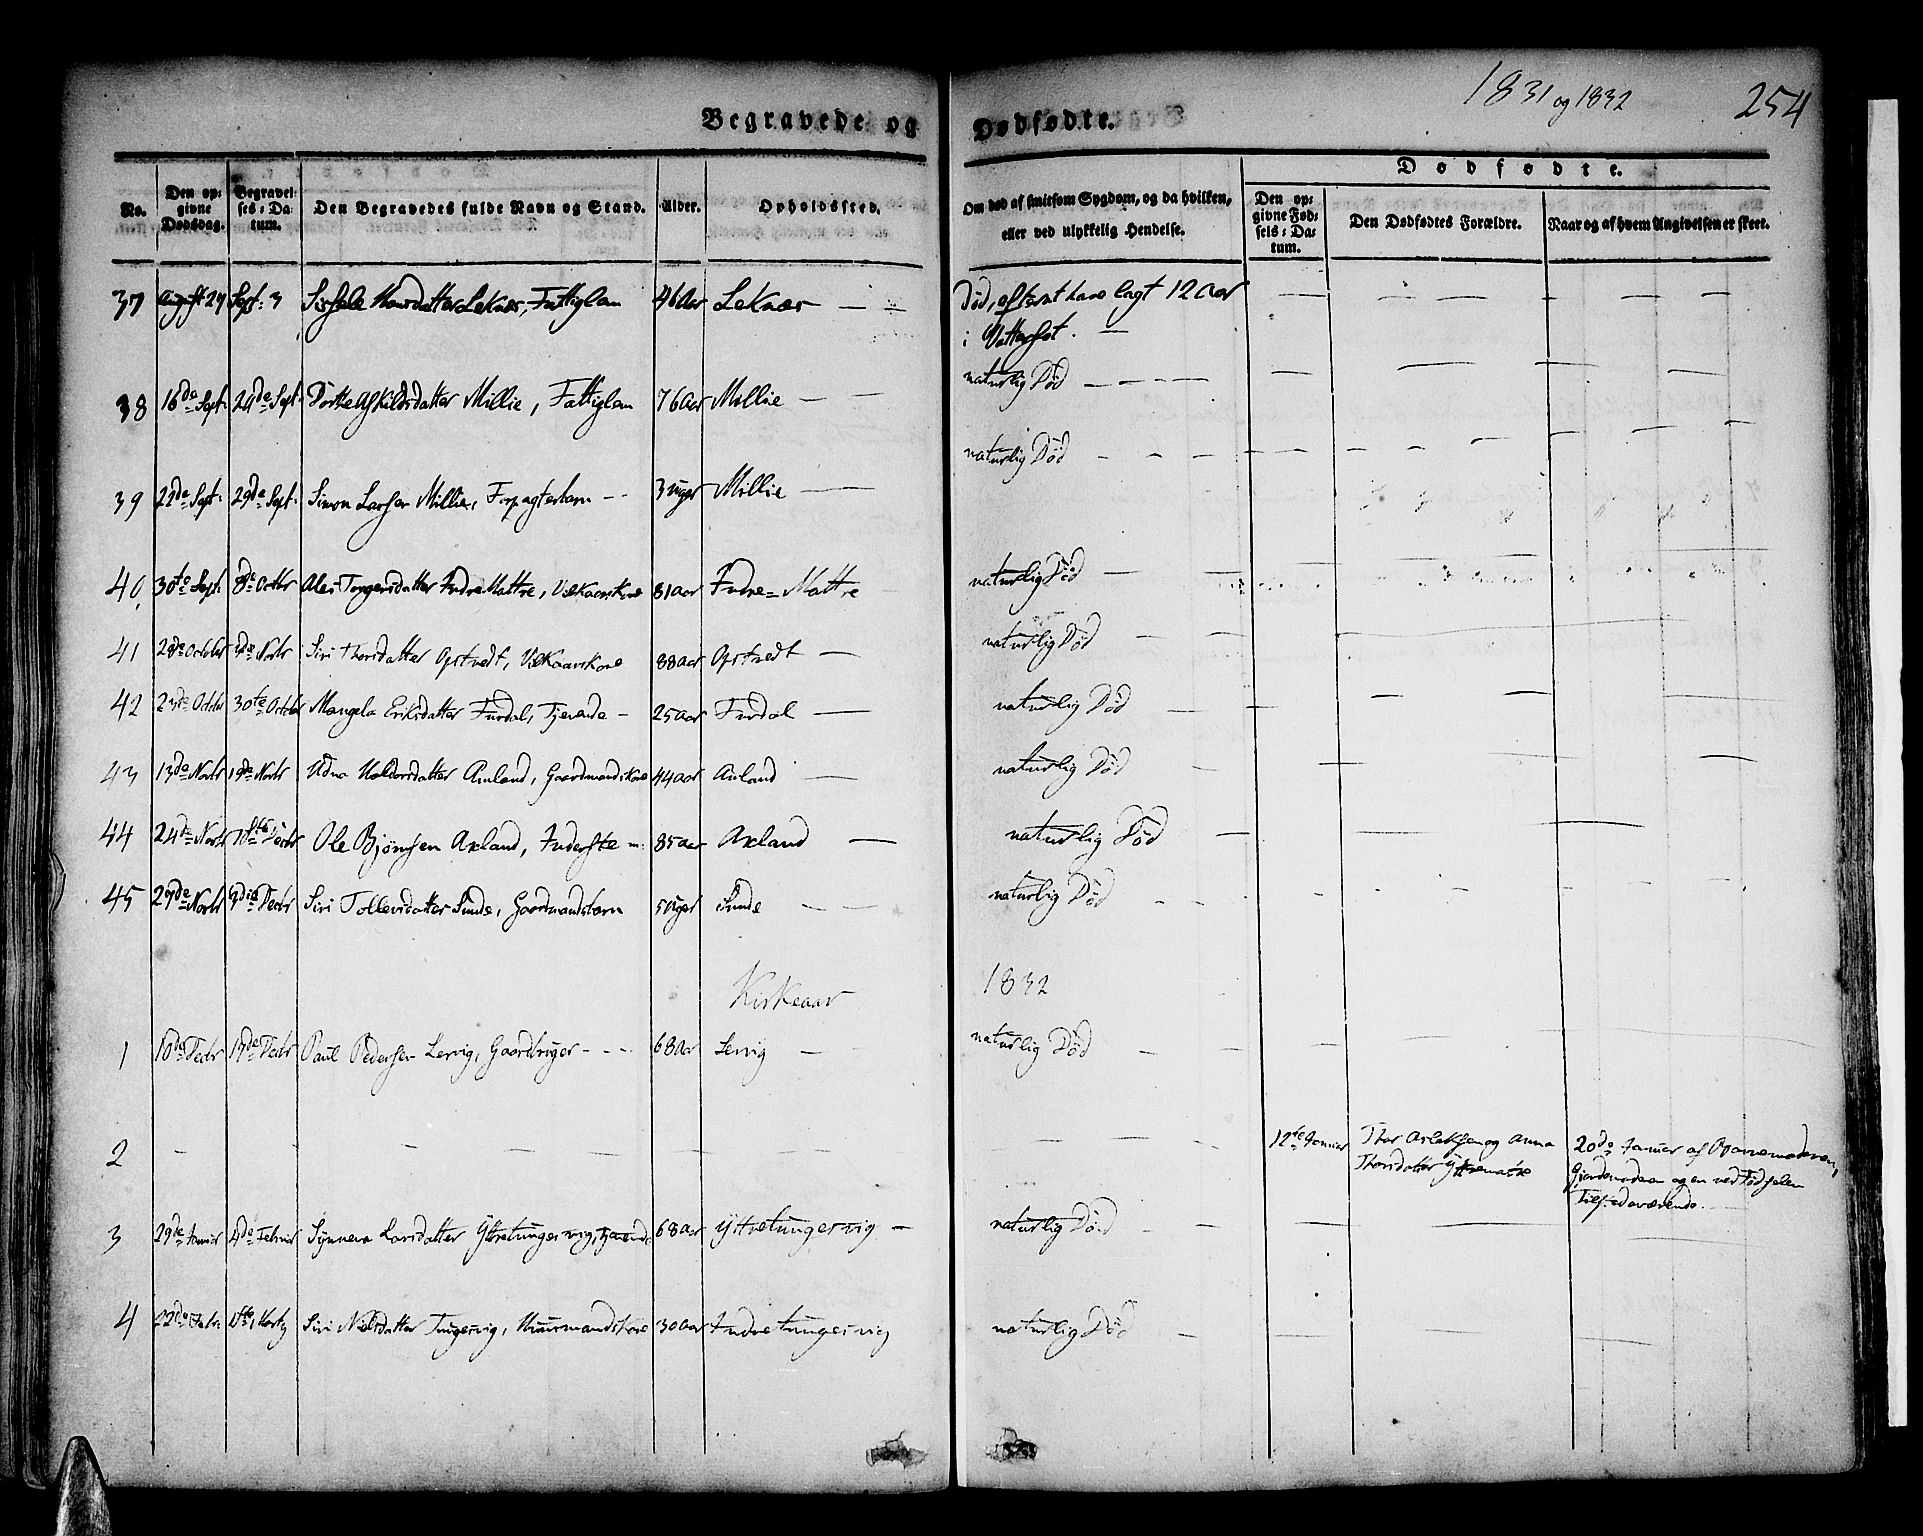 1831 og 1832
254
Begravede og Dødfødte.
Dødfødte.
No.
Den op-
givne
Dødsdag.
Begravel-
ses-Da-
tum.
Den Begravedes fulde Navn og Stand.
Alder.
Opholdssted.
Om død af smitsom Sygdom, og da hvilken,
eller ved ulykkelig Hendelse.
Den op-
givne Fød-
sels-Da-
tum.
Den Dødfødtes Forældre.
Naar og af hvem Angivelsen er skeet.
37 August 24 Sept: 3 Lekner, Fattiglem 46 Aar Lekner — — Død, efter at have lagt 12 Aar
i
38 16de Sept: 24de Sept: Dorthe Millie, Fattiglem 76 Aar Millie — — naturlig Død
39 22de Sept: 29de Sept: Simon Larsen Millie, Forpagterbarn 3 uger Millie — naturlig Død
40 30te Sept: 8de Octbr Torgersdatter Indre Mattre, Vilkaarskone 81 aar Indre-Mattre naturlig Død
41 28de Octobr Novbr Siri Thorsdatter Opstvedt, Vilkaarskone 88 aar Opstvedt — naturlig Død
42 23de Octobr 30te Octobr Mangela Eriksdatter Furdal, Tjenende — 25 aar Furdal — naturlig Død
43 13de Novbr 19de Novbr Udna Haldorsdatter Axland, Gaardmandskone 44 aar Axland — naturlig Død
44 24de Novbr Decbr Ole Bjørnsen Axland, Inderste 85 aar Axland — naturlig Død
45 29de Novbr Decbr Siri Tollevsdatter Sunde, Gaardmandsbarn 5 Uger Sunde — — naturlig Død
Kirkeaar 1832
1 10de Decbr 17de Decbr Paul Pedersen Lervig, Gaardbruger 68 Aar Lervig — naturlig Død
2 — 12te Januar Thor Aslaksen og Anna
Thorsdatter
20de Januar af
Gjordemoderen og en ved Fødselen
Tilstedeværende.
3 29de Januar 4de Februar Synneva Larsdatter Yttretungesvig, tjenende 68 Aar Yttretungesvig — naturlig Død
4 22de Febr: Siri Nilsdatter Tungesvig, Huusmandskone 30 Aar Indretungesvig naturlig Død